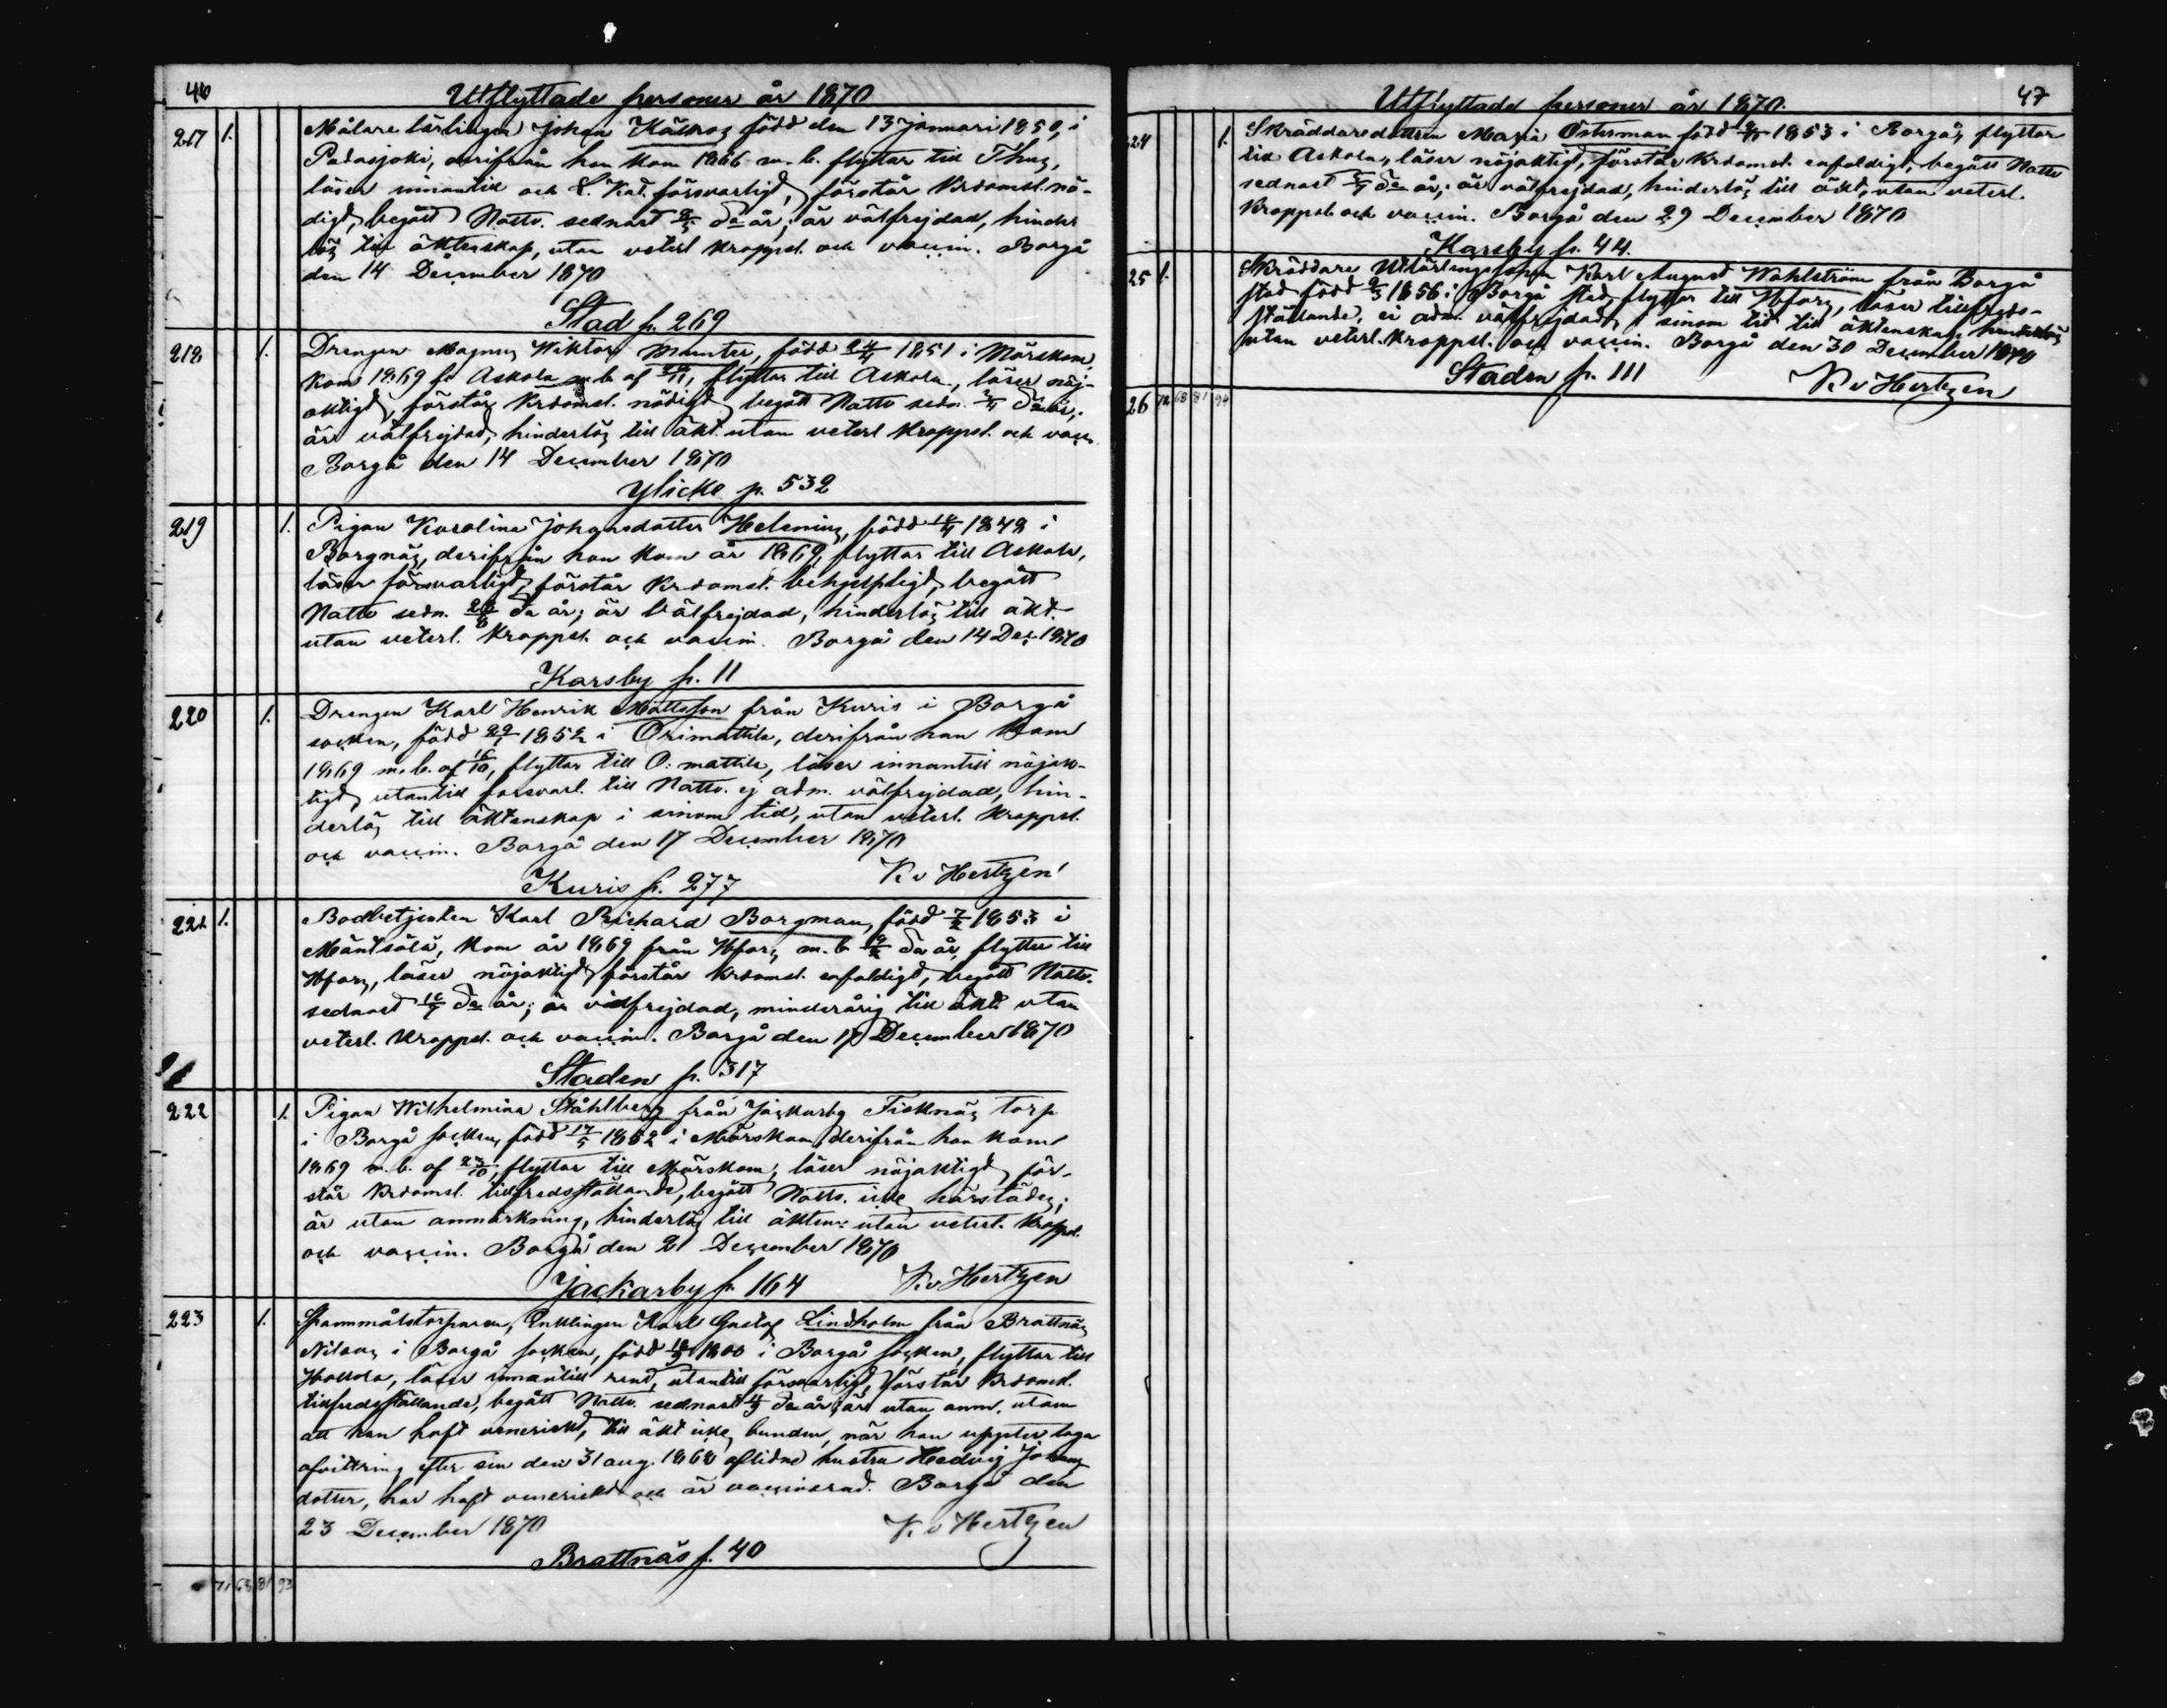 46
Utflyttade personer år 1870
217 1. Målare lärlingen Johan född den 13 Januari 1850, i
Padasjoki, derifrån han kom 1866 m. b. flyttar till Thus,
läser innantill och L. Kat. försvarligt, förstår Krdomsl. nö-
digt, begått Nattv. sednast da år; är välfrejdad, hinders
lös till äktenskap, utan veterl kroppsl. och vaccin. Borgå
den 14 December 1870
Stad p. 269
218 1. Drengen Magnus Wiktor Munter, född 24/4 1851 i Mörskom,
kom 1869 fr Askola m b af flyttar till Askola, läser nöj-
aktigt, förstår Krdomsl. nödigt begått Nattv sedn. da år;
är välfrejdad, hinderlös till äkt. utan veterl kroppsl. och vacc
Borgå den 14 December 1870
Ylicke p. 532
219 1. Pigan Karolina Johansdotter Helenius, född 1848 i
Borgnäs, derifrån hon kom år 1869, flyttar till Askola,
läser försvarligt förstår Krdomsl. behjelpligt, begått
Nattv sedn. da år; är välfrejdad, hinderlös till äkt.
utan veterl. kroppsl. och vaccin. Borgå den 14 Dec 1870
Karsby p. 11
220 1. Drengen Karl Henrik Mattsson från Kuris i Borgå
socken, född 22/1 1852 i Orimattila, derifrån han kom
1869 m. b. af 16/10, flyttar till O:mattila, läser innantill nöjak-
tigt, utantill försvarl. till Nattv. ej adm. välfrejdad, hin-
derlös till äktenskap i sinom tid, utan veterl. kroppsl.
och vaccin. Borgå den 17 December 1870
Kuris p. 277 K. v Hertzen
221 1. Bodbetjenten Karl Richard Borgman, född 7/2 1853 i
Mäntsälä, kom år 1869 från Hfors, m. b da år, flyttar till
Hfors, läser nöjaktigt förstår Krdomsl. enfaldigt, begått Nattv.
sednast da år; är välfrejdad, minderårig till äkt. utan
veterl. kroppsl. och vaccin. Borgå den 17 December 1870
Staden p. 317
222 1. Pigan Wilhelmina Ståhlberg från Jackarby Fisknäs torp
i Borgå socken, född 17/5 1852 i Mörskom, derifrån hon kom
1869 m. b. af 23/10, flyttar till Mörskom, läser nöjaktigt för-
står Krdomsl. tillfredsställande, begått Nattv. icke härstädes;
är utan anmärkning, hinderlös till äkten: utan veterl. kroppsl.
och vaccin. Borgå den 21 December 1870
Jackarby p. 164 K. v Hertzen
223 1. Spannmålstorparen, Enklingen Karl Gustaf Lindholm från Brattnäs
Nilars i Borgå socken, född 1800 i Borgå socken, flyttar till
Hollola, läser innantill rent, utantill försvarligt, förstår Krdomsl.
tillfredsställande, begått Nattv. sednast da år; är utan anm. utom
att han haft venerisk, till äkt icke bunden, när han uppter laga
afvittring efter sin den 31 aug. 1868 aflidne hustru Hedvig Johans
dotter, har haft venerisk och är vaccinerad. Borgå den
23 December 1870 K. v Hertzen
Brattnäs p. 40
71 63 81 93
47
Utflyttade personer år 1870.
224 1. Skräddaredottren Maria Österman född 1853 i Borgå, flyttar
till Askola, läser nöjaktigt, förstår Krdomsl. enfaldigt, begått Nattv
sednast da år; är välfrejdad, hinderlös till äkt, utan veterl.
kroppsl. och vaccin. Borgå den 29 December 1870
Karsby p. 44.
25 1. Skräddare Utlärlingssonen Karl August Wahlström från Borgå
stad född 9/3 1856 i Borgå stad, flyttar till Hfors, läser tillfreds-
ställande, ei adm. välfrejdad, i sinom tid till äktenskap hinderlös
utan veterl. kroppsl. och vaccin. Borgå den 30 December 1870
Staden p. 111 K v Hertzen
26 72 63 81 94